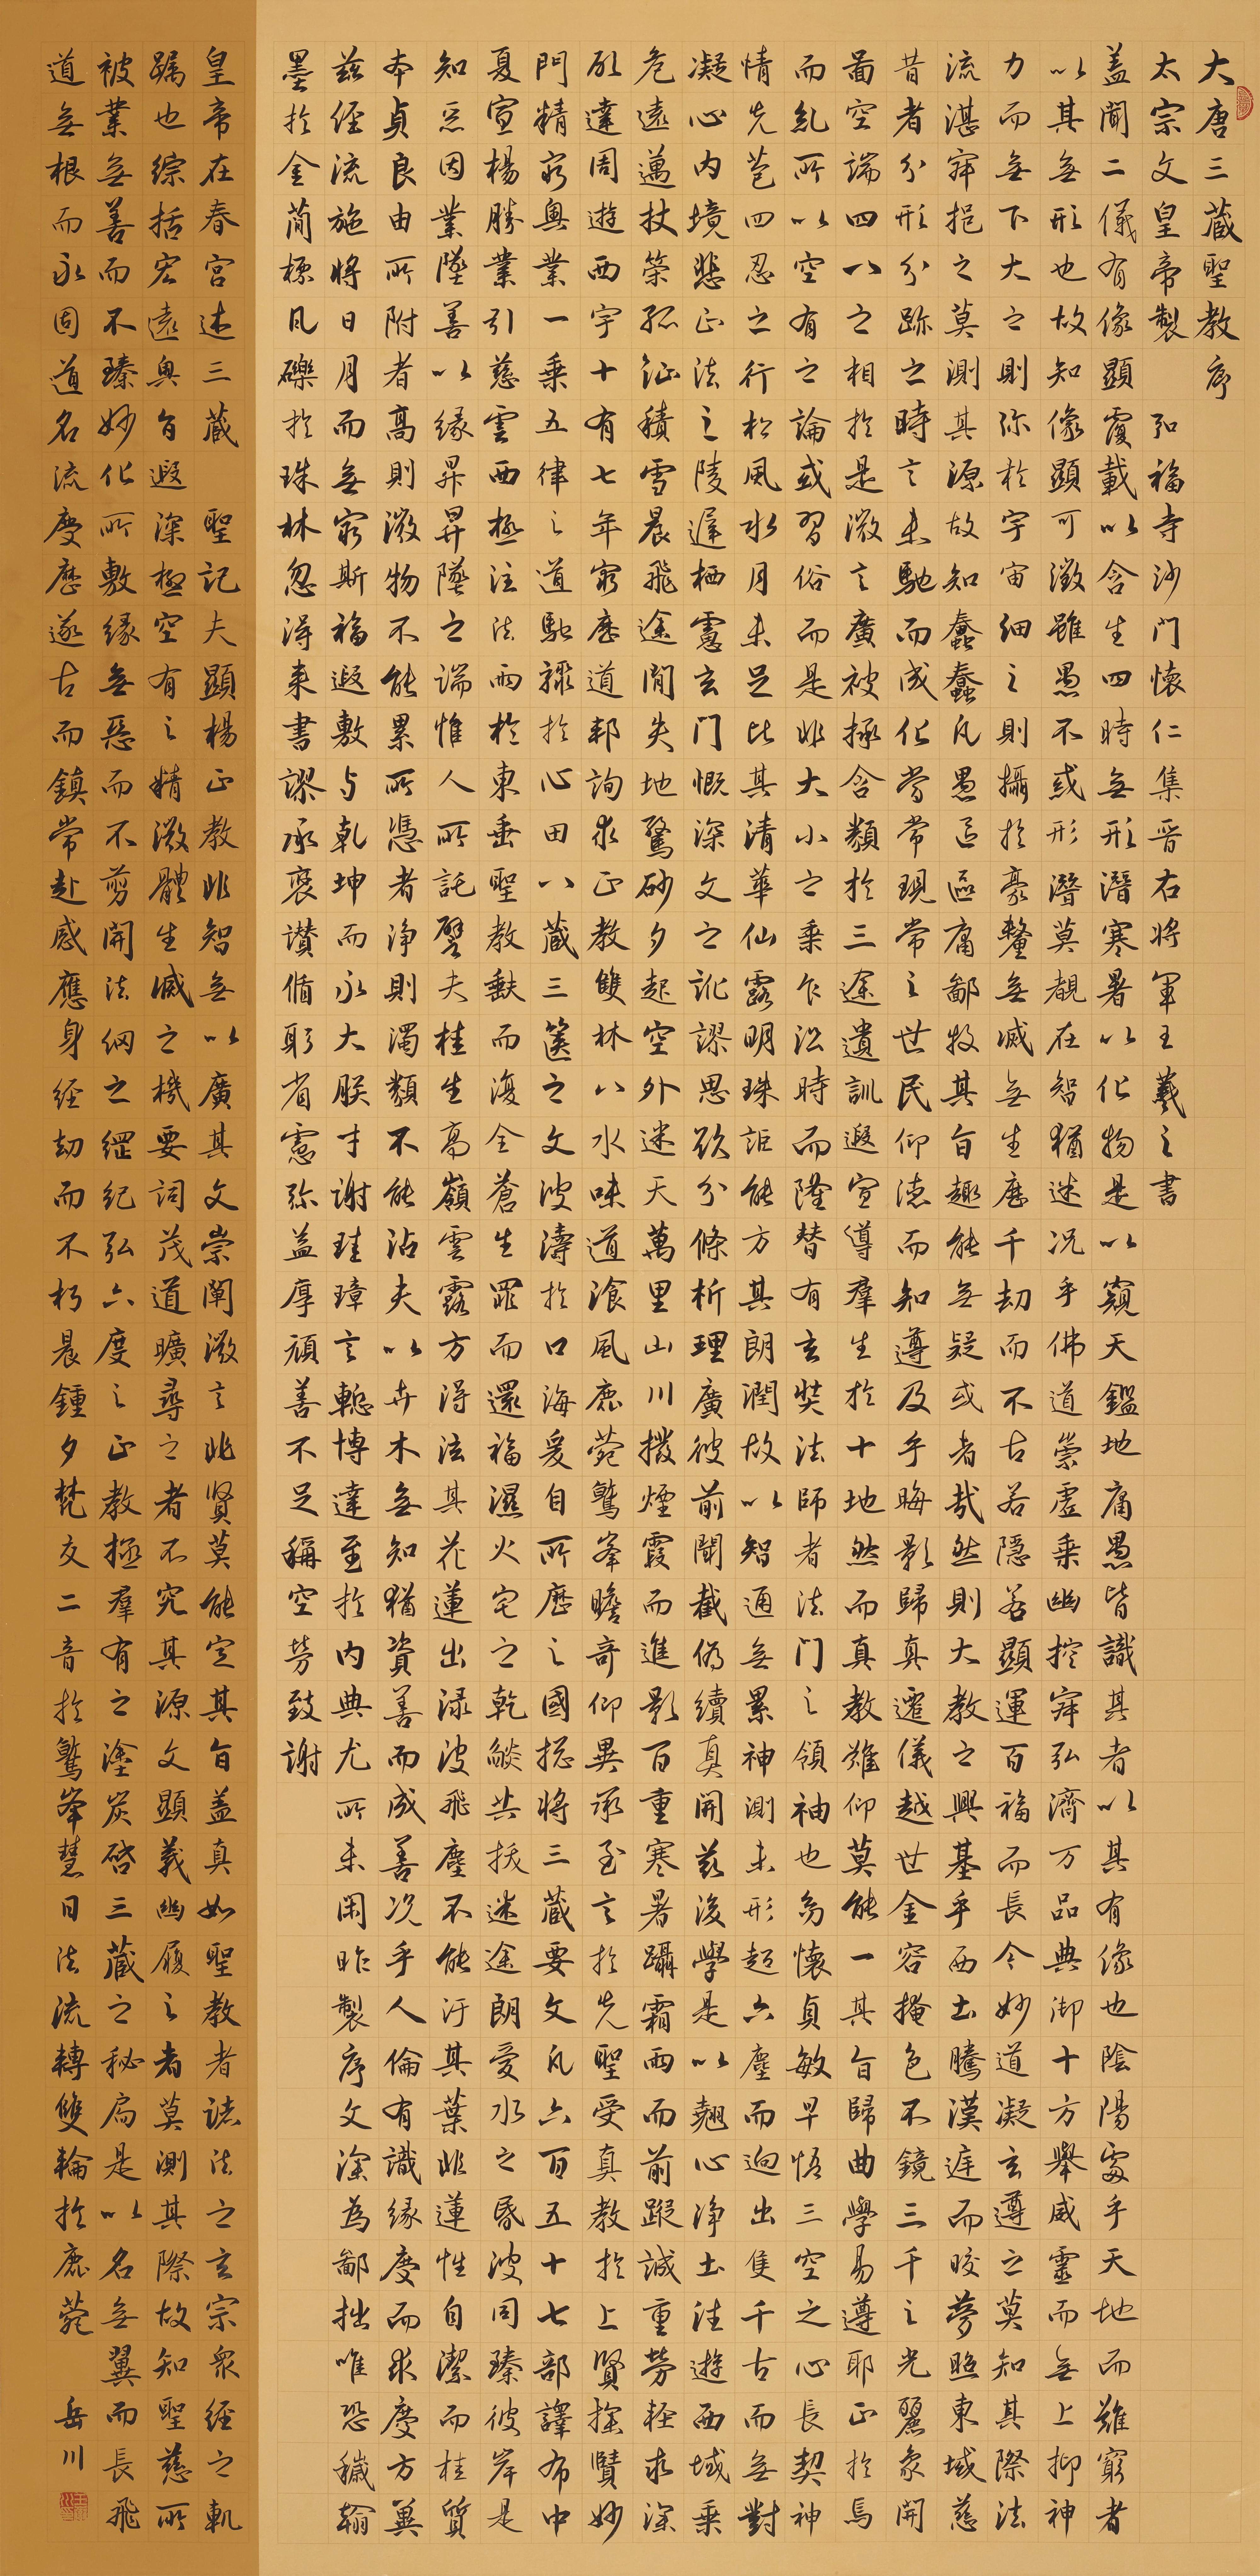 大唐三藏聖教序
太宗文皇帝製 弘福寺沙门懷仁集晋右将軍王羲之書
盖聞二儀有像顯覆載以含生四時無形潛寒暑以化物是以窺天鑑地庸愚皆識其者以其有像也陰陽處乎天地而難窮者
以其無形也故知像顯可徵雖愚不惑形潛莫覩在智猶迷况乎佛道崇虛乘幽控寂弘濟万品典御十方舉威靈而無上抑神
力而無下大之則弥於宇宙細之則攝於豪釐無滅無生歷千劫而不古若隱若顯運百福而長今妙道凝玄遵之莫知其際法
流湛寂挹之莫測其源故知蠢蠢凡愚區區庸鄙投其旨趣能無疑或者哉然則大教之興基乎西土騰漢庭而皎夢照東域慈
昔者分形分跡之時言未馳而成化當常現常之世民仰德而知遵及乎晦影歸真遷儀越世金容掩色不鏡三千之光麗象開
啚空端四八之相於是微言廣被拯含類於三途遺訓遐宣導羣生於十地然而真教難仰莫能一其旨歸曲學易遵耶正於焉
而糺所以空有之論或習俗而是非大小之乘乍沿時而隆替有玄奘法師者法门之領袖也幼懷貞敏早悟三空之心長契神
情先苞四忍之行松風水月未足比其清華仙露明珠詎能方其朗潤故以智通無累神測未形超六塵而迥出隻千古而無對
凝心内境悲正法之陵遲栖慮玄门慨深文之訛謬思欲分條析理廣彼前聞截偽續真開兹後學是以翹心净土法遊西域乘
危遠邁杖策孤征積雪晨飛途閒失地驚砂夕起空外迷天萬里山川撥煙霞而進影百重寒暑躡霜雨而前蹤誠重勞輕求深
願達周遊西宇十有七年窮歷道邦詢求正教雙林八水味道飡風鹿菀鷲峯瞻奇仰異承至言於先聖受真教於上賢探賾妙
門精窮奥業一乘五律之道馳驟於心田八藏三篋之文波濤於口海爰自所歷之國揔將三藏要文凡六百五十七部譯布中
夏宣楊勝業引慈雲西極注法雨於東垂聖教缺而復全蒼生罪而還福濕火宅之乾燄共拔迷途朗愛水之昏波同臻彼岸是
知惡因業墜善以緣昇昇墜之端惟人所託譬夫桂生高嶺雲露方得泫其花蓮出渌波飛塵不能汙其葉非蓮性自潔而桂質
本貞良由所附者高則微物不能累所憑者净則濁類不能沾夫以卉木無知猶資善而成善况乎人倫有識緣慶而求慶方冀
兹經流施將日月而無窮斯福遐敷与乾坤而永大朕才謝珪璋言慙博達至於内典尤所未閑昨製序文深為鄙拙唯恐穢翰
墨於金簡標瓦礫於珠林忽得来書謬承褒讃循躬省慮弥益厚顔善不足稱空勞致謝
皇帝在春宮述三藏 聖記夫顯楊正教非智無以廣其文崇闡微言非賢莫能定其旨盖真如聖教者諸法之玄宗衆經之軌
躅也綜括宏遠奥旨遐深極空有之精微體生滅之機要詞茂道曠尋之者不究其源文顯義幽履之者莫測其際故知聖慈所
被業無善而不臻妙化所敷緣無惡而不剪開法網之綱紀弘六度之正教拯羣有之塗炭啓三藏之秘扃是以名無翼而長飛
道無根而永固道名流慶歷遂古而鎮常赴感應身經劫而不朽晨鍾夕梵交二音於鷲峯慧日法流轉雙輪於鹿菀 岳川